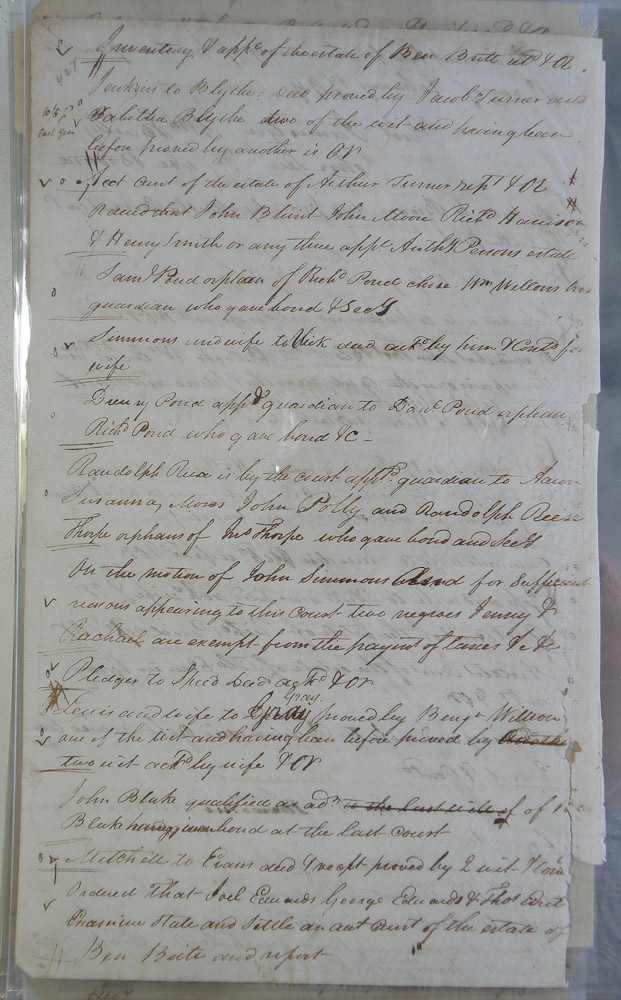 Inventory & appt of the estate of Ben Britt retd & OR
427
Jenkins to Blythe Deed proved by Jacob Turner and
Tabitha Blythe two of the wit and having been
before proved by another is OR
last year
acct Curt of the estate of Arthur Turner retd & OR
Ordered that John Blunt John Moore Richd Harrison
& Henry Smith or any three appr Persons estate
Saml Pond orphan of Richd Pond chose Wm Wellons his
guardian who gave bond & Secy
Simmons and wife to Vick deed ackd by him & Contd for
wife
Drewry Pond appd guardian to Danl Pond orphan
Richd Pond who gave bond &c
Randolph Rese is by the court apptd guardian to Aaron
Susanna, Moses John Polly and Randolph Reese
Thorpe orphans of Jno Thorpe who gave bond and Secy
On the motion of John Simmons and for sufficient
reasons appearing to this court two negroes Jenny &
Rachael are exempt from the paymt of taxes &c &c
Pledger to Speed Deed ackd & OR
Gray
Lewis and wife to Gray proved by Benja Wilson
one of the wit and having been before proved by Another
two wit ackd by wife & OR
John Blake qualified as adr to the last will of of
Blake having given bond at the last court
Mitchell to Evans deed & rect proved by 2 wit & Contd
Ordered that Joel Edwards George Edwards & Thos
Examine State and Settle an act Curt of the estate of
Ben Britt and report